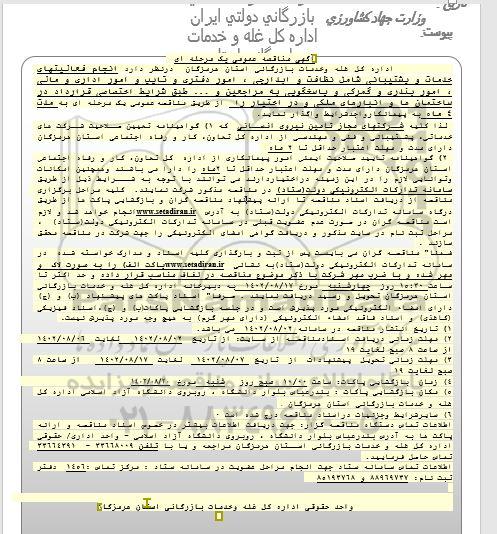 تاریخ:
بازرگاني دولتي ايران
وزارت جهاد کشاورزي
اداره کل غله و خدمات
پیوست:
آگهی مناقصه عمومی یک مرحله ای
اداره کل غله وخدمات بازرگانی استان هرمزگان درنظر دارد انجام فعالیتهای
خدمات و پشتیبانی شامل نظافت و آبدارچی ، امور دفتری و تایپ و امور اداری و مالی
، امور بندری و گمرکی و پاسخگویی به مراجعین و ... طبق شرایط اختصاصی قرارداد در
ساختمان ها و انبارهای ملکی و در اختیار را از طریق مناقصه عمومی یک مرحله ای به مدت
۴ ماه به پیمانکارواجدشرایط واگذار نمایند.
لذا کلیه شرکتهای مجاز تامین نیروی انسانی که ۱) گواهینامه تعیین صلاحیت شرکت های
خدماتی، پشتیبانی و فنی و مهندسی از اداره کل تعاون، کار و رفاه اجتماعی استان هرمزگان
دارای مدت و مهلت اعتبار حداقل تا ۲ ماه
۲) گواهینامه تایید صلاحیت ایمنی امور پیمانکاری از اداره کل تعاون، کار و رفاه اجتماعی
استان هرمزگان دارای مدت و مهلت اعتبار حداقل تا ۲ماه را دارا می باشند وهمچنین امکانات
وتوانایی لازم را در این زمینه دراختیاردارند می توانند با توجه به شرایط ذیل از طریق
سامانه تدارکات الکترونیکی دولت(ستاد) در مناقصه مذکور شرکت نمایند. کلیه مراحل برگزاری
مناقصه از دریافت اسناد مناقصه تا ارائه پیشنهاد مناقصه گران و بازگشایی پاکت ها از طریق
درگاه سامانه تدارکات الکترونیکی دولت(ستاد) به آدرس www.setadiran.ir انجام خواهد شد و لازم
است مناقصه گران در صورت عدم عضویت قبلی در سامانه تدارکات الکترونیکی دولت(ستاد) ،
مراحل ثبت نام در سایت مذکور و دریافت گواهی امضای الکترونیکی را جهت شرکت در مناقصه محقق
سازند .
ضمنا" مناقصه گران می بایست پس از ثبت و بارگذاری کلیه اسناد و مدارک خواسته شده در
سامانه تدارکات الکترونیکی دولت(ستاد)به نشانی www.setadiran.ir پاکت الف) را به صورت لاک و
مهر شده و با ضرب مهر شرکت با ذکر موضوع مناقصه درلفاف مناسب قرار داده و حد اکثر تا
ساعت ۱۰:۳۰ روز چهارشنبه مورخ ۱۴۰۲/۰۸/۱۷ به دبیرخانه اداره کل غله و خدمات بازرگانی
استان هرمزگان تحویل و رسید دریافت نمایند. صرفا" اسناد پاکت های پیشنهاد (ب) و (ج)
دارای امضاء الکترونیکی مورد پذیرش است و در جلسه بازگشایی پاکات(ب) و (ج)، اسناد فیزیکی
(کاغذی) و اسناد فاقد امضاء الکترونیکی (دارای مهر گرم) به هیچ وجه مورد پذیرش نیست.
۱) تاریخ انتشار مناقصه در سامانه ۱۴۰۲/۰۸/۰۲ می باشد.
۲) مهلت زمانی دریافت اسنادمناقصه از سایت: از تاریخ ۱۴۰۲/۰۸/۰۲ لغایت ۱۴۰۲/۰۸/۰۶
از ساعت ۸ صبح لغایت ۱۹
۳) مهلت زمانی تحویل پیشنهادات از تاریخ ۱۴۰۲/۰۸/۰۷ لغایت ۱۴۰۲/۰۸/۱۷ از ساعت ۸
صبح لغایت ۱۹
۴) زمان بازگشایی پاکات: ساعت ۱۰/۰۰ صبح روز شنبه مورخ
۵) مکان بازگشایی پاکات : بندرعباس بلوار دانشگاه ، روبروی دانشگاه آزاد اسلامی اداره کل
غله و خدمات بازرگانی استان هرمزگان .
۶) سایرشرایط وجزئیات دراسناد مناقصه درج شده است .
اطلاعات تماس دستگاه مناقصه گزار: جهت دریافت اطلاعات بیشتر در خصوص اسناد مناقصه و ارائه
پاکت ها به آدرس بندرعباس بلوار دانشگاه ، روبروی دانشگاه آزاد اسلامی - واحد اداری/ حقوقی
اداره کل غله و خدمات بازرگانی استان هرمزگان مراجعه و یا با تلفن ۳۳۶۶۸۰۰۹ - ۳۳۶۶۴۳۹۱
تماس حاصل فرمایید.
اطلاعات تماس سامانه ستاد جهت انجام مراحل عضویت در سامانه ستاد : مرکز تماس :۱۴۵۶ دفتر
ثبت نام: ۸۸۹۶۹۷۳۷ و ۸۵۱۹۳۷۶۸
واحد حقوقی اداره کل غله وخدمات بازرگانی استان هرمزگان